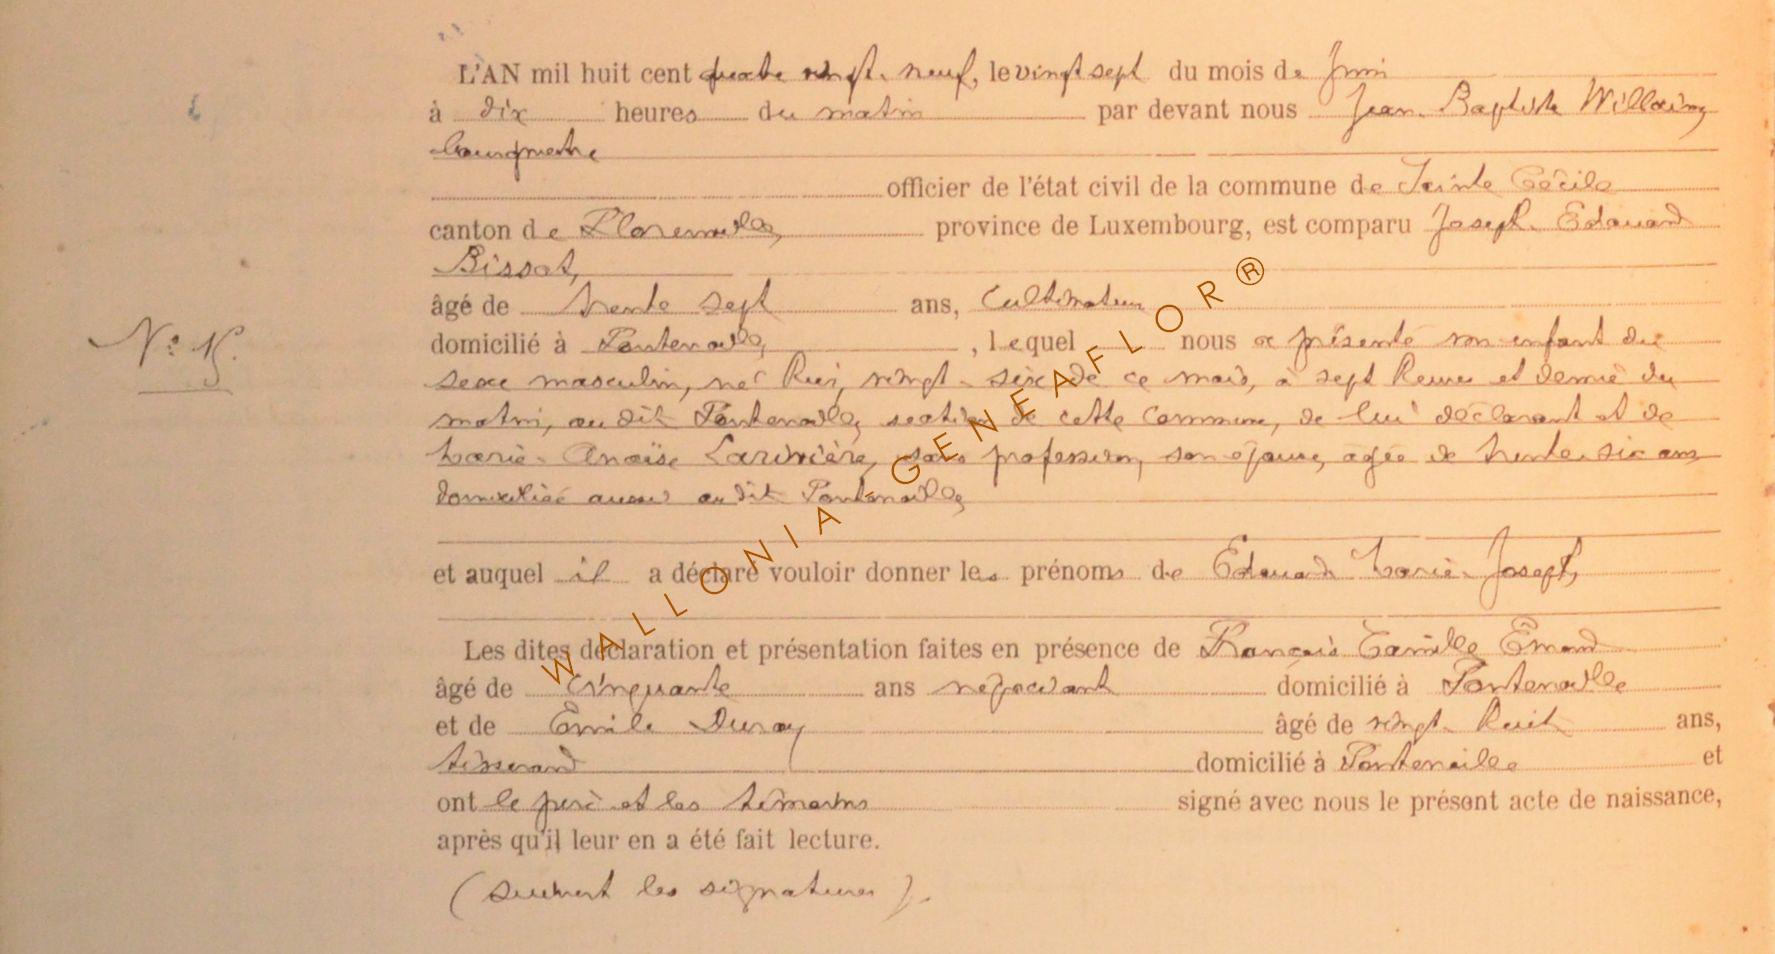 L'AN mil huit cent quatre vingt. neuf, le vingt sept du mois de Juin
à dix heures du matin par devant nous Jean. Baptiste Willaimy
bourgmestre
officier de l'état civil de la commune de Sainte Cécile
canton de Florenville, province de Luxembourg, est comparu Joseph. Edouard
Bissot,
âgé de trente sept ans, Cultivateur
N° 15.
domicilié à Fontenaille, , lequel nous a présenté son enfant du
sexe masculin, né hier, vingt-six de ce mois, à sept heures et demie du
matin, au dit Fontenaille, section de cette Commune, de lui déclarant et de
Marie-Anaïse Larivière, sans profession, son épouse, agée de trente-six ans
domiciliée aussi au dit Fontenaille,
et auquel il a déclaré vouloir donner les prénoms de Edouard Marie-Joseph,
Les dites déclaration et présentation faites en présence de François Camille Emond
âgé de Cinquante ans négociant domicilié à Fontenaille
et de Emile Duroy âgé de vingt-huit ans,
tisserand domicilié à Fontenaille et
ont le père et les témoins signé avec nous le présent acte de naissance,
après qu'il leur en a été fait lecture.
(suivent les signatures).
WALLONIA-GENEAFLOR®